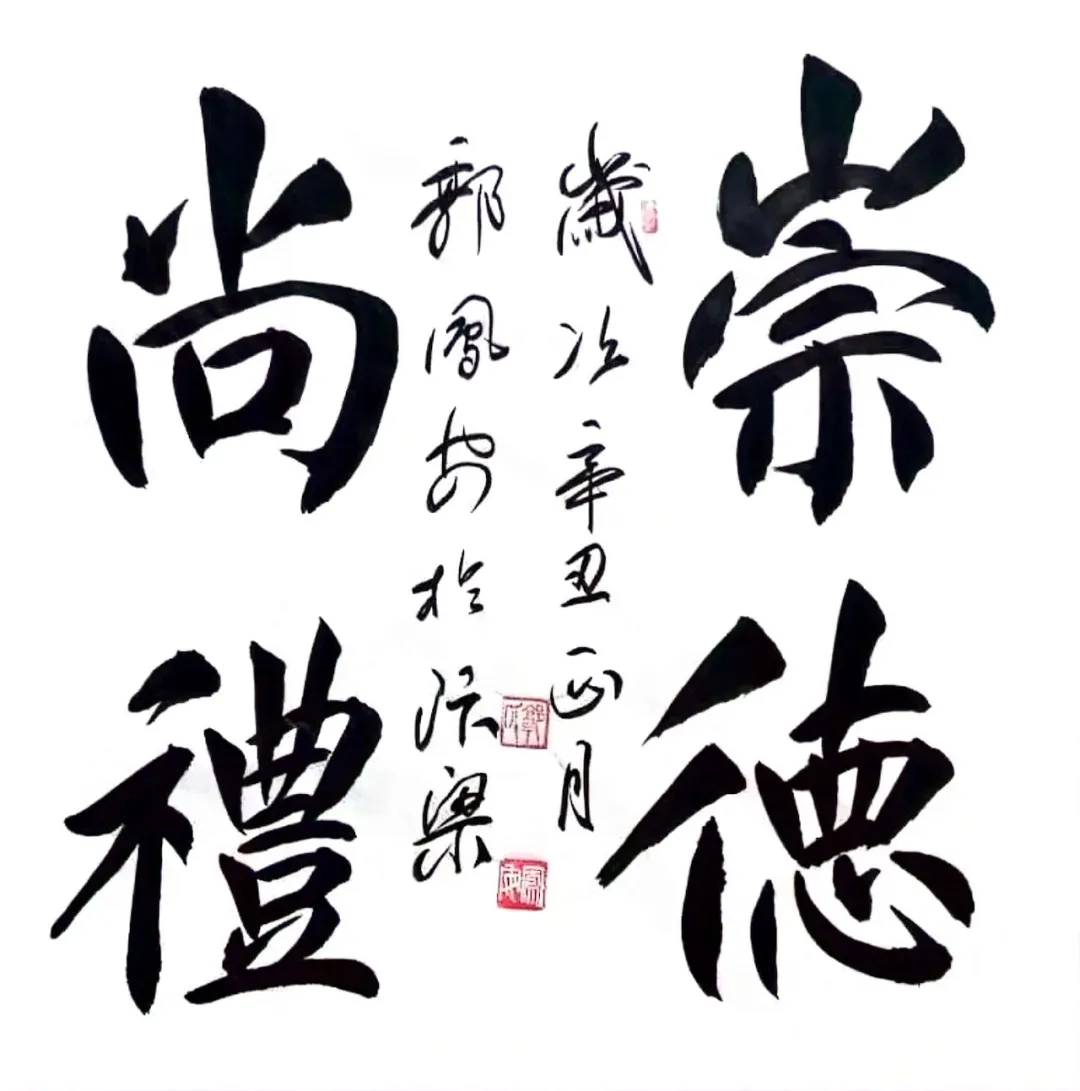 崇德
尚禮
歲次辛丑正月
郭鳳安於汴梁